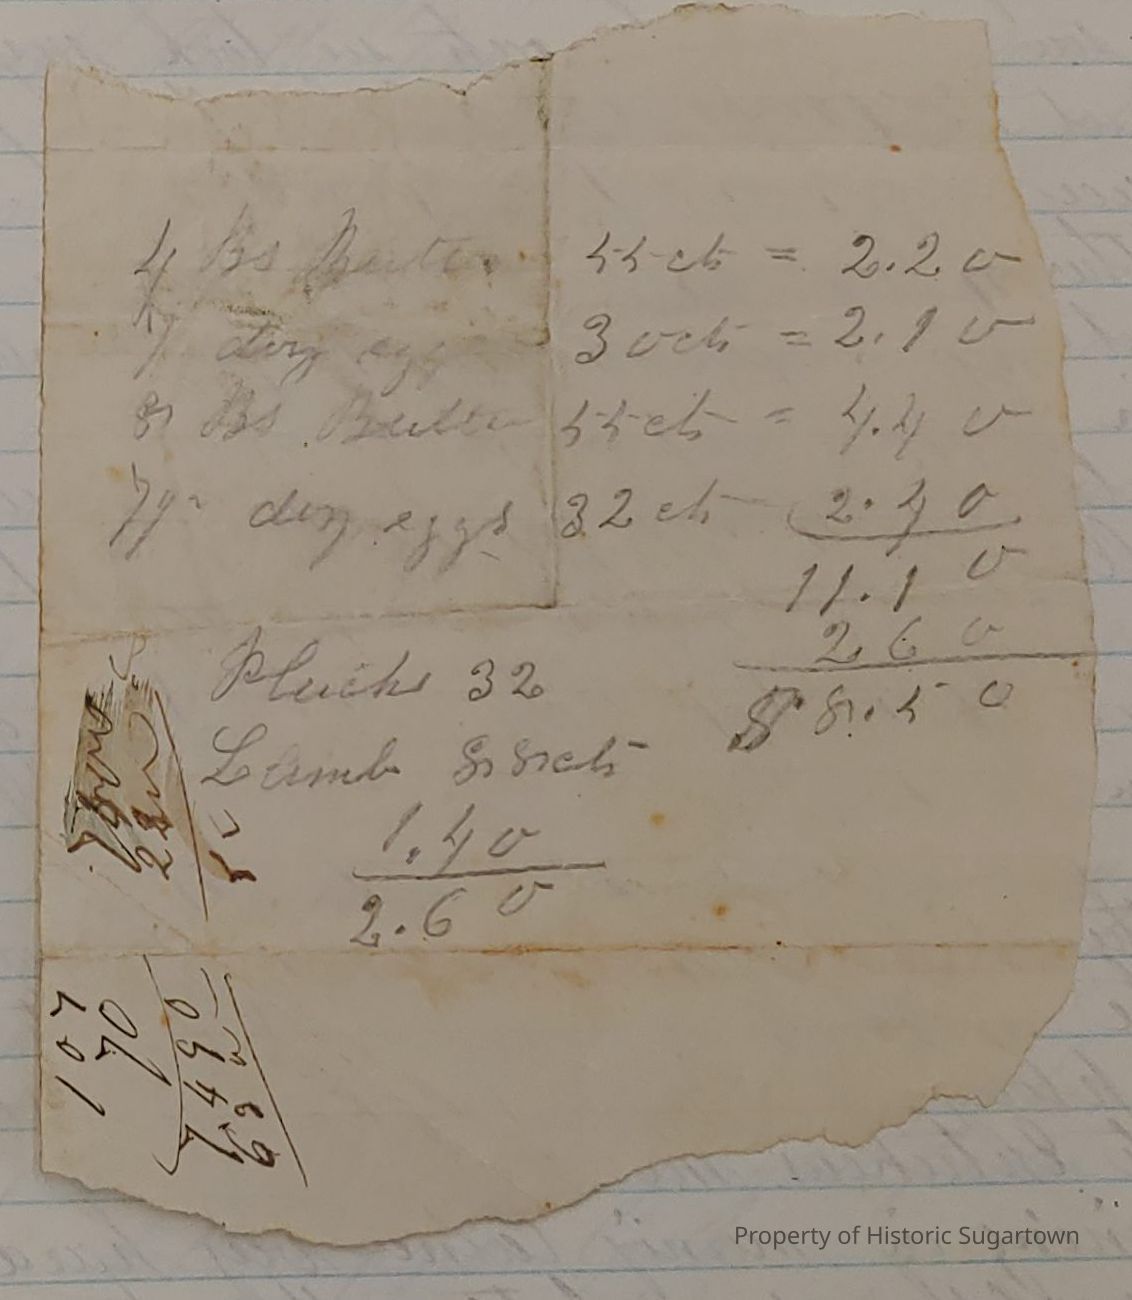 4 lbs Butter 55 cts = 2.20
7 doz eggs 30 cts = 2.10
8 lbs Butter 55 cts = 4.40
7½ doz eggs 32 cts 2.40
11.10
2 60
$ 8.50
Plucks 32
Lamb 88 cts
1.40
2.60
Property of Historic Sugartown